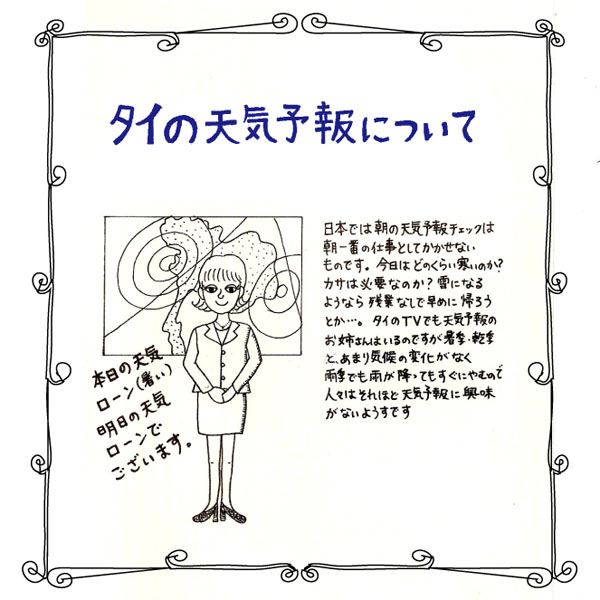 タイの天気予報について
日本では朝の天気予報チェックは
朝一番の仕事としてかかせない
ものです。今日はどのくらい寒いのか?
カサは必要なのか? 雪になる
ようなら残業なしで早めに帰ろう
とか…。タイのTVでも天気予報の
お姉さんはいるのですが暑季・乾季
と、あまり気候の変化がなく
雨季でも雨が降ってもすぐにやむので
人々はそれほど天気予報に興味
がないようすです
本日の天気
ローン(暑い)
明日の天気
ローンで
ございます。